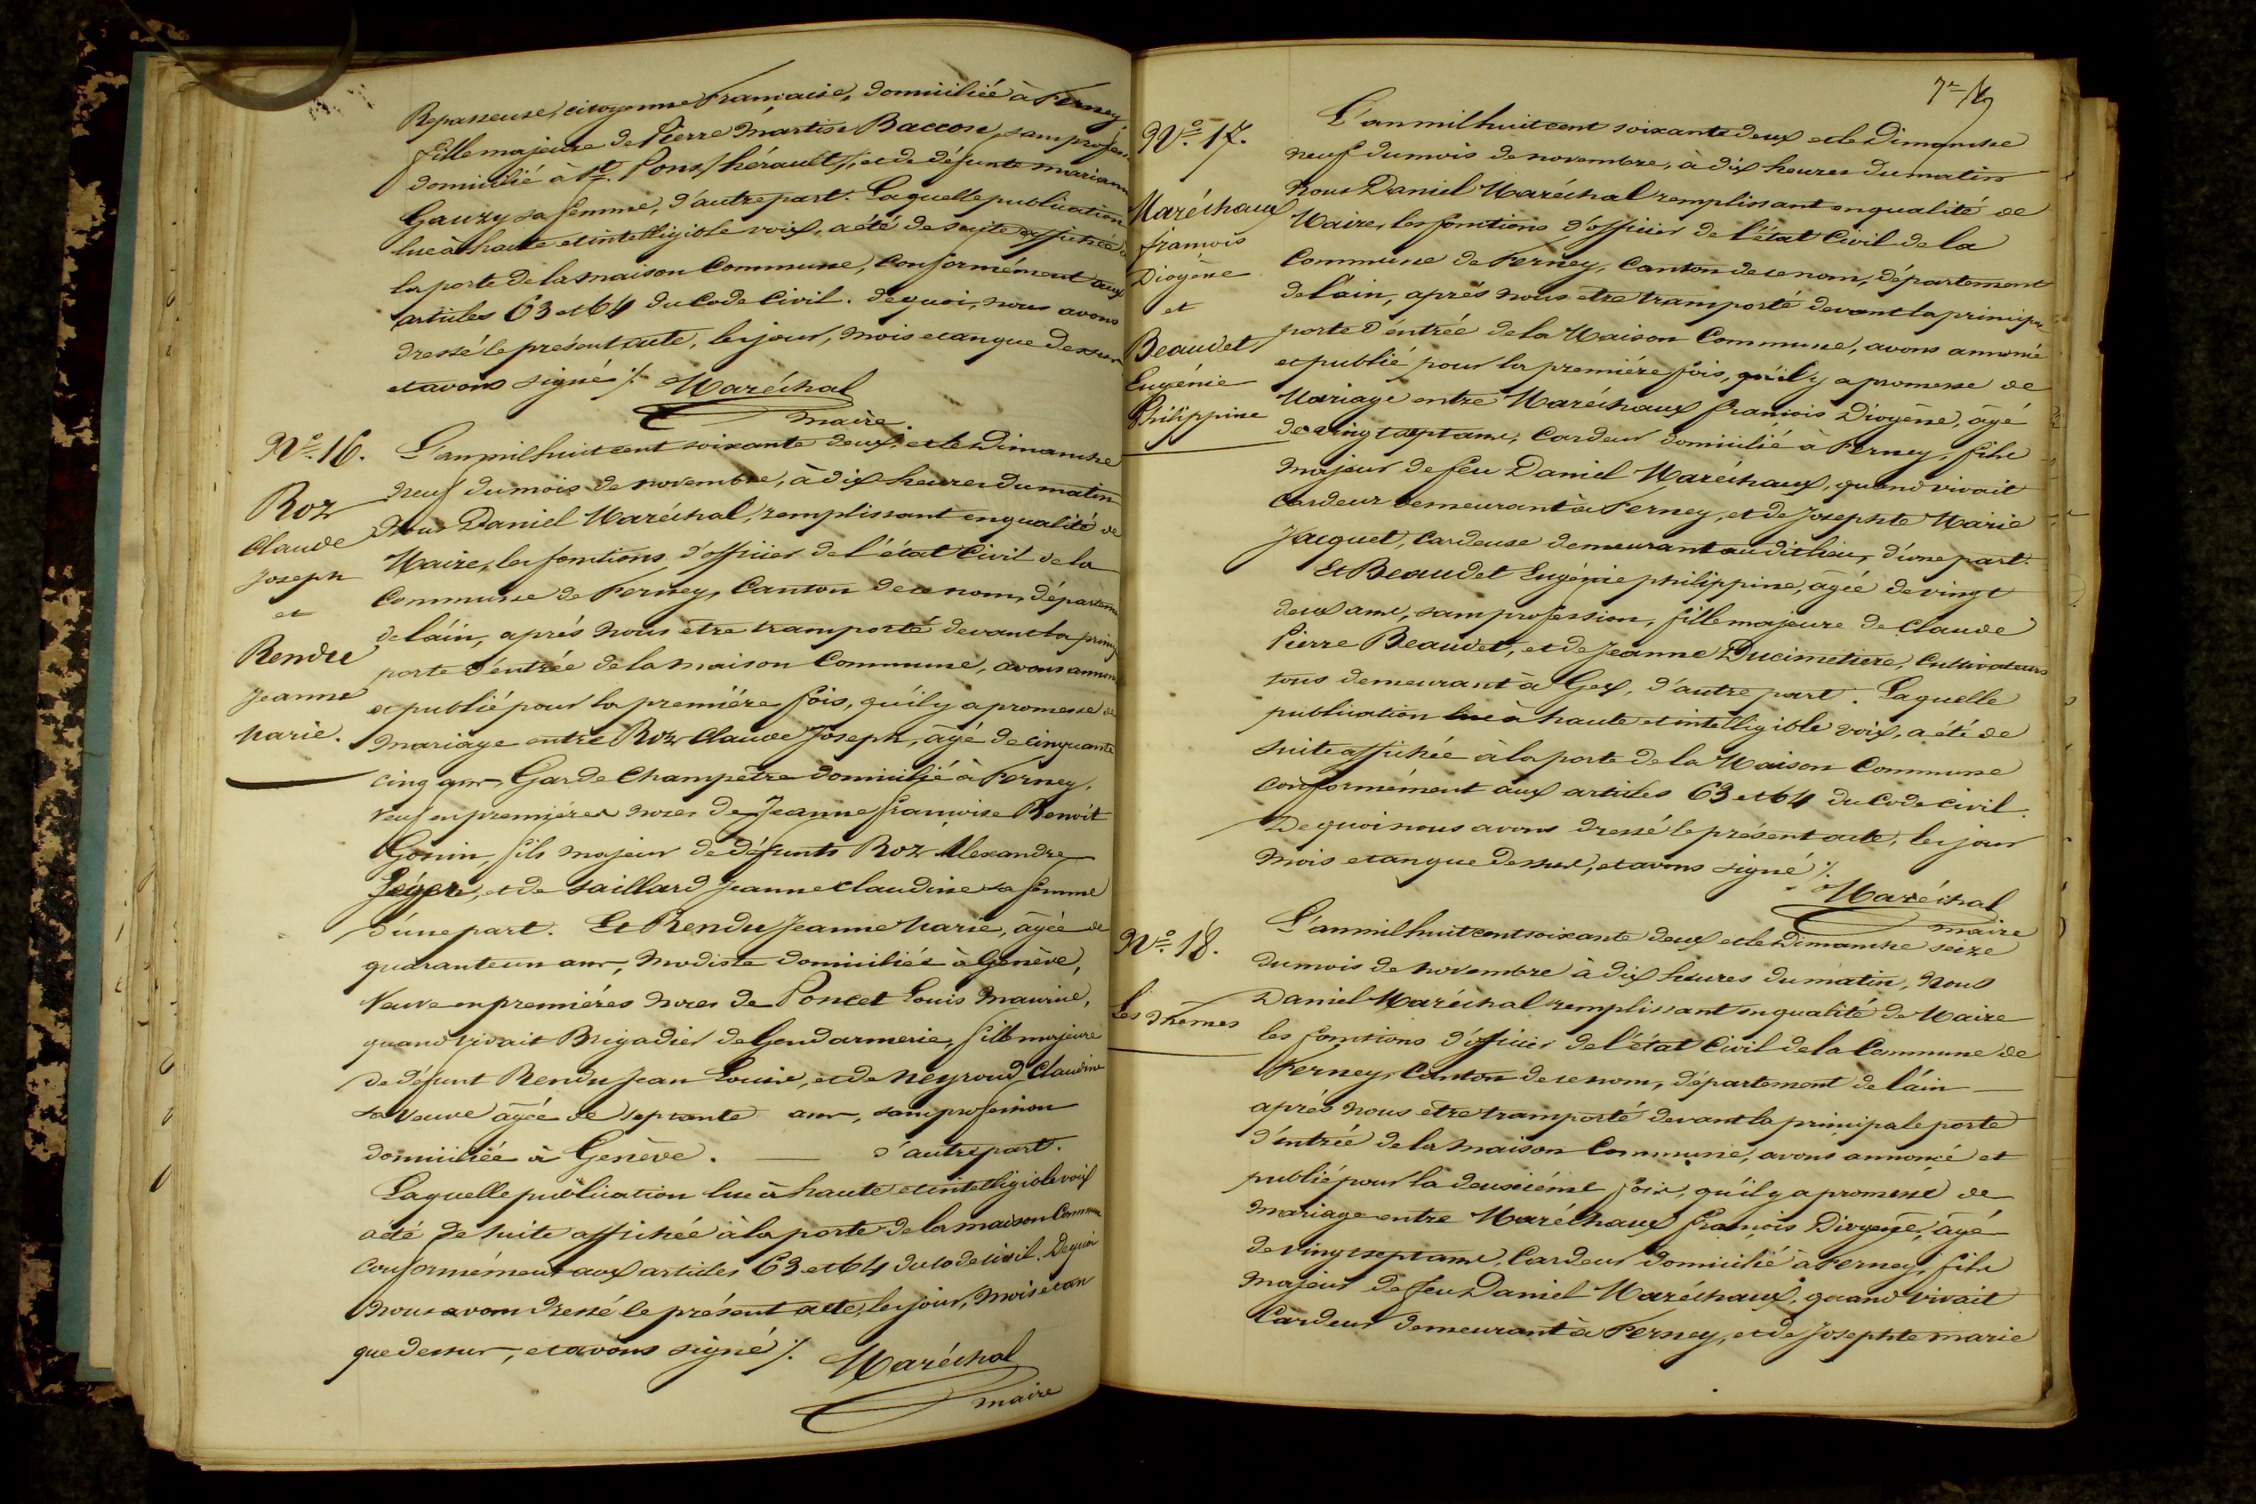 Repasseuse, citoyenne Française, domiciliée à Ferney,
fille majeure de Pierre Martise Baccose, sans profes
domicilié à St. Pons (hérault), et de défunte mariann
Gauzy sa femme, d'autre part. Laquelle publication
lue à haute et intelligible voix, a été de suite affichée à
la porte de la maison Commune, Conformément aux
articles 63 et 64 du Code Civil. de quoi, nous avons
dressé le présent acte, les jour, mois et an que dessus
et avons signé ./. Maréchal
maire
No. 16.
Roz
Claude
Joseph
et
Rendu
Jeanne
Marie.
L'an mil huit cent soixante deux, et le Dimanche
neuf du mois de novembre, à dix heures du matin
Nous Daniel Maréchal, remplissant en qualité de
Maire, les fonctions d'officier de l'état Civil de la
Commune de Ferney, Canton de ce nom, départeme
de l'ain, après nous être transporté devant la princ
porte d'entrée de la maison Commune, avons annon
et publié pour la première fois, qu'il y a promesse de
mariage entre Roz Claude Joseph, âgé de cinquante
cinq ans, Garde Champêtre domicilié à Ferney,
veuf en premières noces de Jeanne françoise Benoit
Gonin, fils majeur de défunts Roz Alexandre
et de Saillard Jeanne Claudine sa femme
d'une part. Et Rendu Jeanne Marie, âgée de
quarante un ans, Modiste domiciliée à Genève,
Veuve en premières noces de Poncet Louis Maurice,
quand vivait Brigadier de Gendarmerie, fille majeure
de défunt Rendu Jean Louis, et de Neyroud Claudine
sa veuve âgée de septante ans, sans profession
domiciliée à Genève. — d'autre part.
Laquelle publication lue à haute et intelligible voix
a été de suite affichée à la porte de la maison Commune
conformément aux articles 63 et 64 du Code civil. De quoi
nous avons dressé le présent acte, les jour, mois et an
que dessus, et avons signé ./. Maréchal
maire
No. 17.
Maréchaux
françois
Diogène
et
Beaudet
Eugénie
Philippine
L'an mil huit cent soixante deux et le Dimanche
neuf du mois de novembre, à dix heures du matin
Nous Daniel Maréchal remplissant en qualité de
Maire, les fonctions d'officier de l'état Civil de la
Commune de Ferney, Canton de ce nom, département
de l'ain, après nous être transporté devant la princip
porte d'entrée de la Maison Commune, avons annoncé
et publié pour la première fois, qu'il y a promesse de
Mariage entre Maréchaux françois Diogène, âgé
de vingt sept ans, Cardeur domicilié à Ferney, fils
majeur de feu Daniel Maréchaux, quand vivait
Cardeur demeurant à Ferney, et de Josephte Marie
Jacquet, Cardeuse demeurant audit lieu, d'une part.
Et Beaudet Eugénie philippine, âgée de vingt
deux ans, sans profession, fille majeure de Claude
Pierre Beaudet, et de Jeanne Ducimetiere, Cultivateurs
tous demeurant à Gex, d'autre part. Laquelle
publication lue à haute et intelligible voix, a été de
suite affichée à la porte de la Maison Commune
conformément aux articles 63 et 64 du Code civil.
De quoi nous avons dressé le présent acte, les jour
mois et an que dessus, et avons signé ./.
Maréchal
maire
No. 18.
Les mêmes
L'an mil huit cent soixante deux et le Dimanche seize
du mois de novembre à dix heures du matin, nous
Daniel Maréchal remplissant en qualité de Maire
les fonctions d'officier de l'état Civil de la Commune de
Ferney, Canton de ce nom, département de l'ain —
après nous être transporté devant la principale porte
d'entrée de la maison Commune, avons annoncé et
publié pour la deuxième fois, qu'il y a promesse de
mariage entre Maréchaux françois Diogène, âgé
de vingt sept ans, Cardeur domicilié à Ferney, fils
majeur de feu Daniel Maréchaux, quand vivait
Cardeur demeurant à Ferney, et de Josephte marie